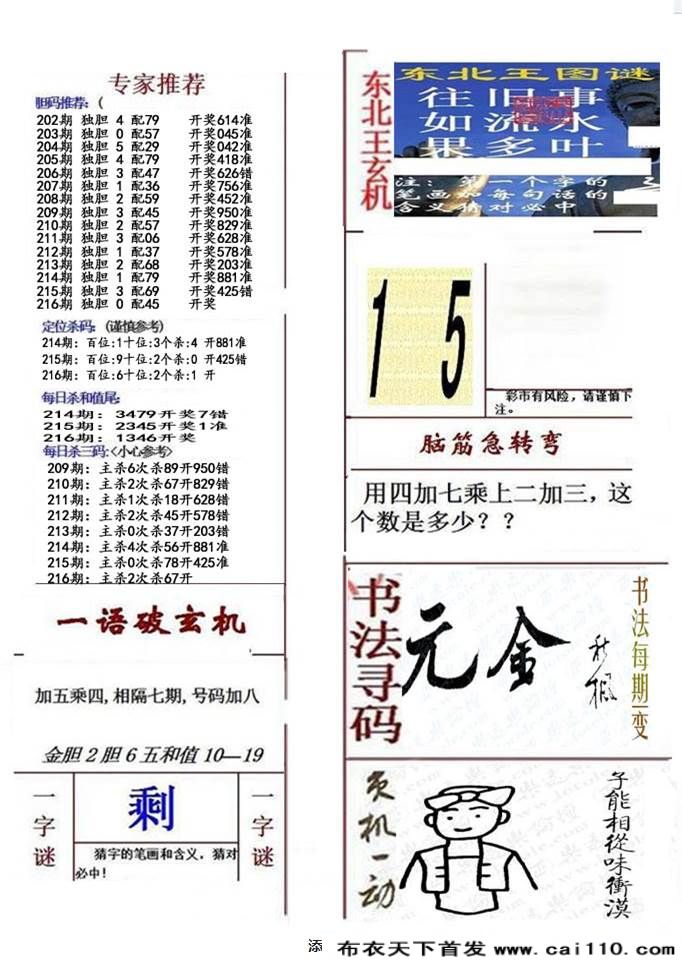 专家推荐
胆码推荐:（
202期 独胆 4 配79 开奖614准
203期 独胆 0 配57 开奖045准
204期 独胆 5 配29 开奖042准
205期 独胆 4 配79 开奖418准
206期 独胆 3 配47 开奖626错
207期 独胆 1 配36 开奖756准
208期 独胆 2 配59 开奖452准
209期 独胆 3 配45 开奖950准
210期 独胆 2 配57 开奖829准
211期 独胆 3 配06 开奖628准
212期 独胆 1 配37 开奖578准
213期 独胆 2 配68 开奖203准
214期 独胆 1 配79 开奖881准
215期 独胆 3 配69 开奖425错
216期 独胆 0 配45 开奖
定位杀码:（谨慎参考）
214期：百位:1十位:3个杀:4 开881准
215期：百位:9十位:2个杀:0 开425错
216期：百位:6十位:2个杀:1 开
每日杀和值尾:
214期：3479开奖7错
215期：2345开奖1准
216期：1346开奖
每日杀三码:<小心参考>
209期：主杀6次杀89开950错
210期：主杀2次杀67开829错
211期：主杀1次杀18开628错
212期：主杀2次杀45开578错
213期：主杀0次杀37开203错
214期：主杀4次杀56开881准
215期：主杀0次杀78开425准
216期：主杀2次杀67开
一语破玄机
加五乘四,相隔七期,号码加八
金胆2胆6五和值10—19
一字谜
剩
一字谜
猜字的笔画和含义，猜对
必中!
东北王玄机
东北王图谜
往旧事
如流水
果多叶
注：第一个字的
笔画加每句话的
含义猜对必中
1 5
彩市有风险，请谨慎下
注。
脑筋急转弯
用四加七乘上二加三，这
个数是多少？？
书法寻码
元金
秋枫
书法每期一变
灵机一动
子能相從味衝漠
添
布衣天下首发 www.cai110.com